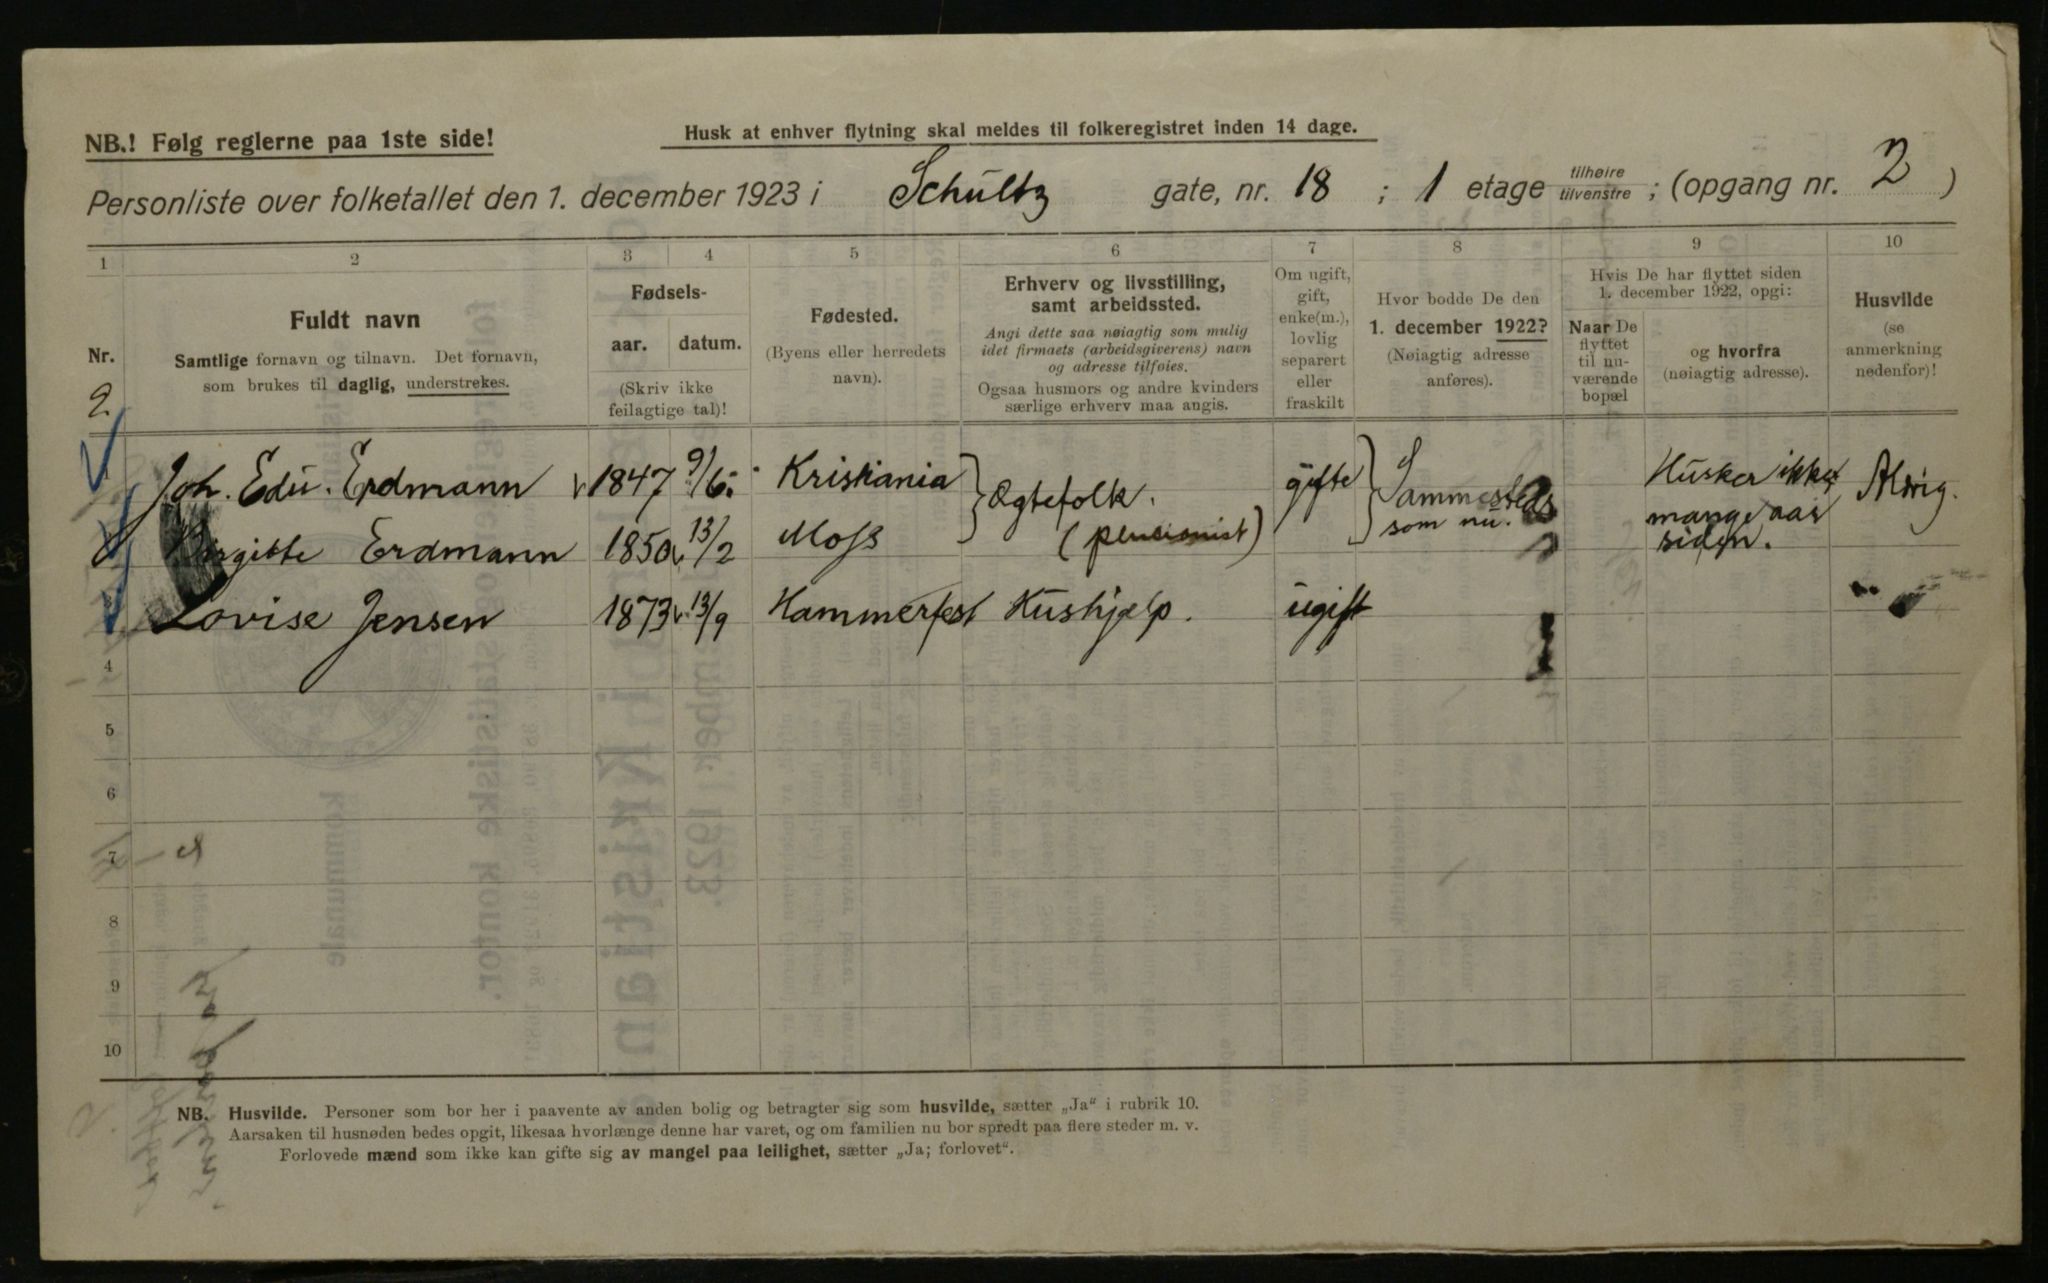 NB.! Følg reglerne paa 1ste side!
Husk at enhver flytning skal meldes til folkeregistret inden 14 dage.
Personliste over folketallet den 1. december 1923 i Schultz gate, nr. 18 ; 1 etage tilhøire/tilvenstre ; (opgang nr. 2 )
1 2 3 4 5 6 7 8 9 10
Nr.
2.
Fuldt navn
Samtlige fornavn og tilnavn. Det fornavn,
som brukes til daglig, understrekes.
Fødsels-
aar. datum.
(Skriv ikke
feilagtige tal)!
Fødested.
(Byens eller herredets
navn).
Erhverv og livsstilling,
samt arbeidssted.
Angi dette saa nøiagtig som mulig
idet firmaets (arbeidsgiverens) navn
og adresse tilføies.
Ogsaa husmors og andre kvinders
særlige erhverv maa angis.
Om ugift,
gift,
enke(m.),
lovlig
separert
eller
fraskilt
Hvor bodde De den
1. december 1922?
(Nøiagtig adresse
anføres).
Hvis De har flyttet siden
1. december 1922, opgi:
Naar De
flyttet
til nu-
værende
bopæl
og hvorfra
(nøiagtig adresse).
Husvilde
(se
anmerkning
nedenfor)!
Joh. Edu. Erdmann 1847 9/6 Kristiania } Ægtefolk. gifte } Sammesteds Husker ikke Aldrig.
Birgitte Erdmann 1850 13/2 Moss (pensionist) som nu. mange aar
siden.
Lovise Jensen 1873 13/9 Hammerfest Hushjælp. ugift
4
5
6
7
8
9
10
NB. Husvilde. Personer som bor her i paavente av anden bolig og betragter sig som husvilde, sætter „Ja“ i rubrik 10.
Aarsaken til husnøden bedes opgit, likesaa hvorlænge denne har varet, og om familien nu bor spredt paa flere steder m. v.
Forlovede mænd som ikke kan gifte sig av mangel paa leilighet, sætter „Ja; forlovet“.